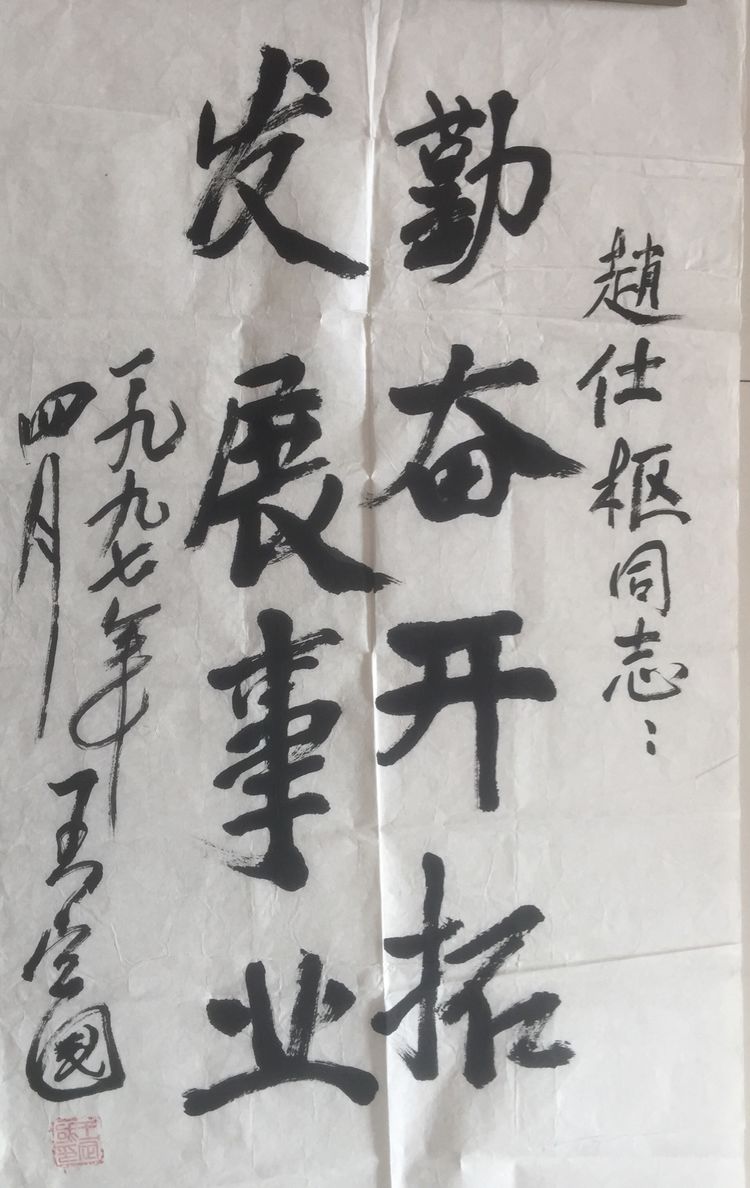 趙仕枢同志：
勤奋开拓
发展事业
一九九七年
四月
王定國